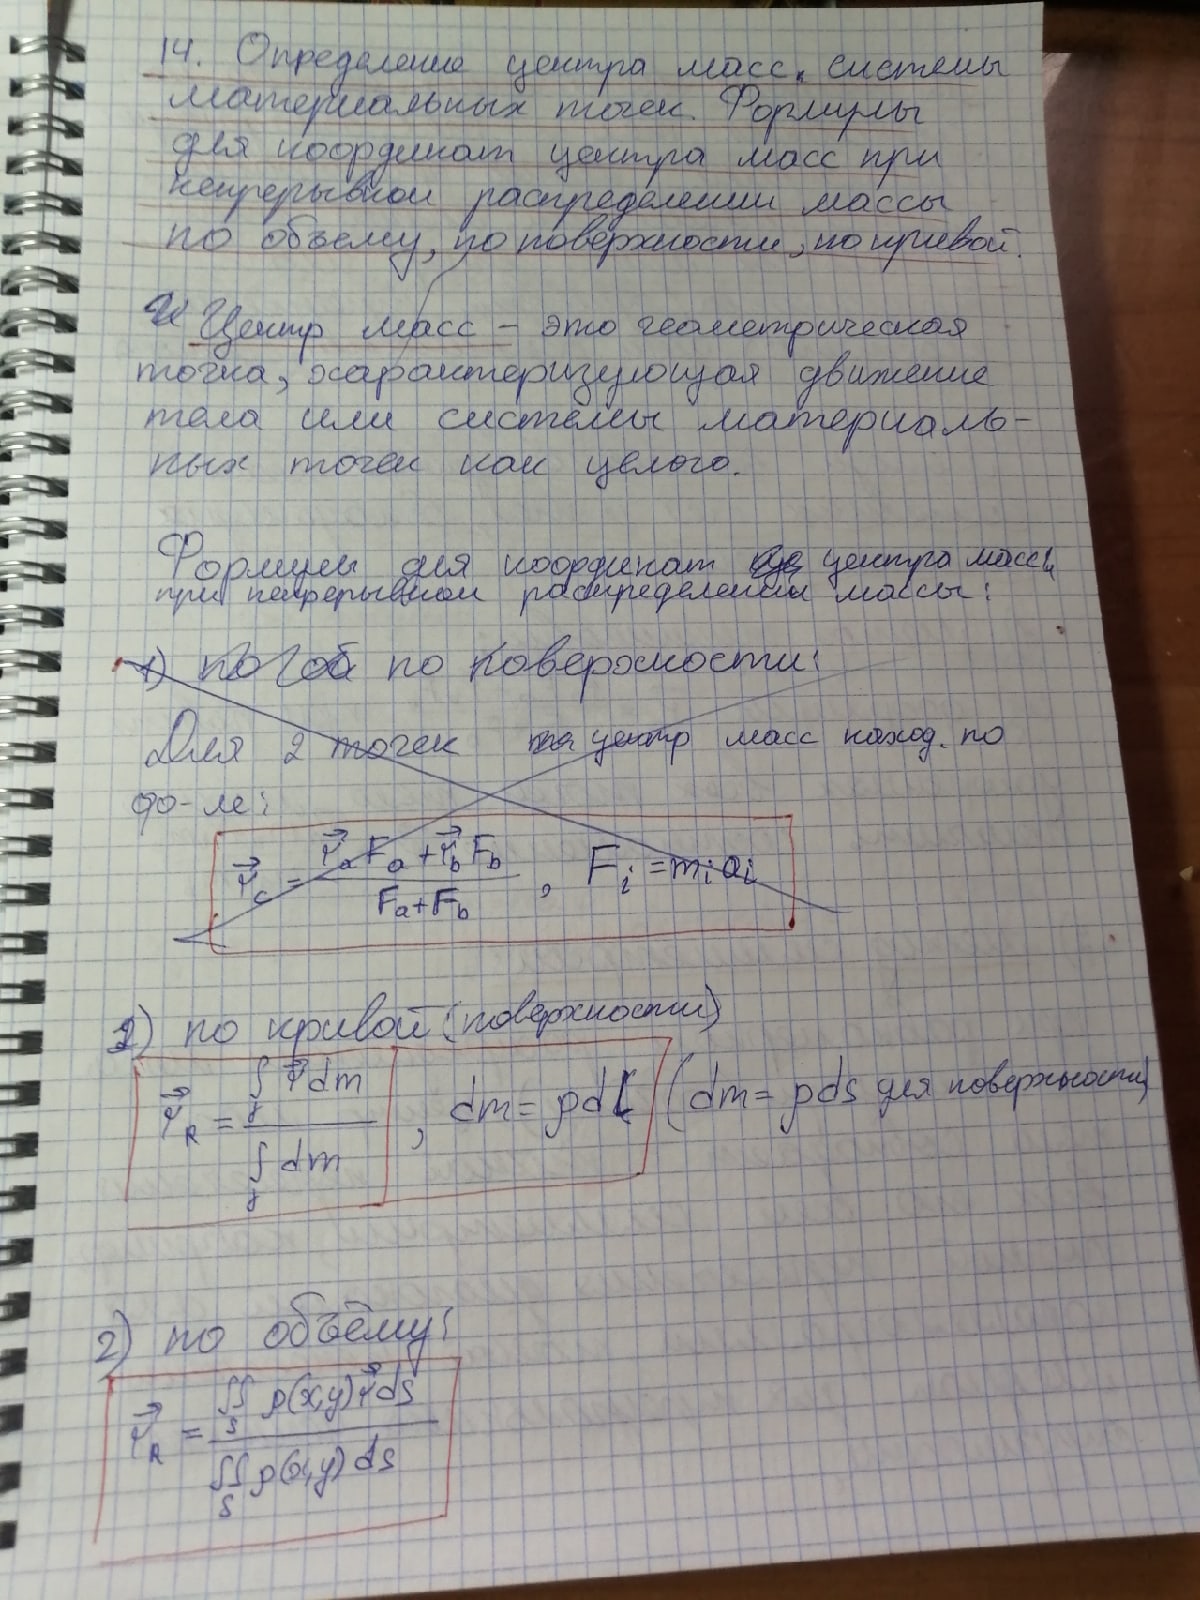 14. Определение центра масс системы
материальных точек. Формулы
для координат центра масс при
непрерывном распределении массы
по объему, по поверхности, по кривой.
Центр масс - это геометрическая
точка, характеризующая движение
тела или системы материаль-
ных точек как целого.
Формулы для координат центра масс
при непрерывном распределении массы:
1) по об по поверхности:
Для 2 точек центр масс наход. по
фо-ле:
r⃗c = (r⃗a Fa + r⃗b Fb) / (Fa + Fb), Fi = mi ai
1) по кривой (поверхности)
r⃗R = ∫γ r⃗ dm / ∫γ dm, dm = ρdl (dm = ρds для поверхности)
2) по объёму:
r⃗R = ∬S ρ(x,y) r⃗ ds / ∬S ρ(x,y) ds